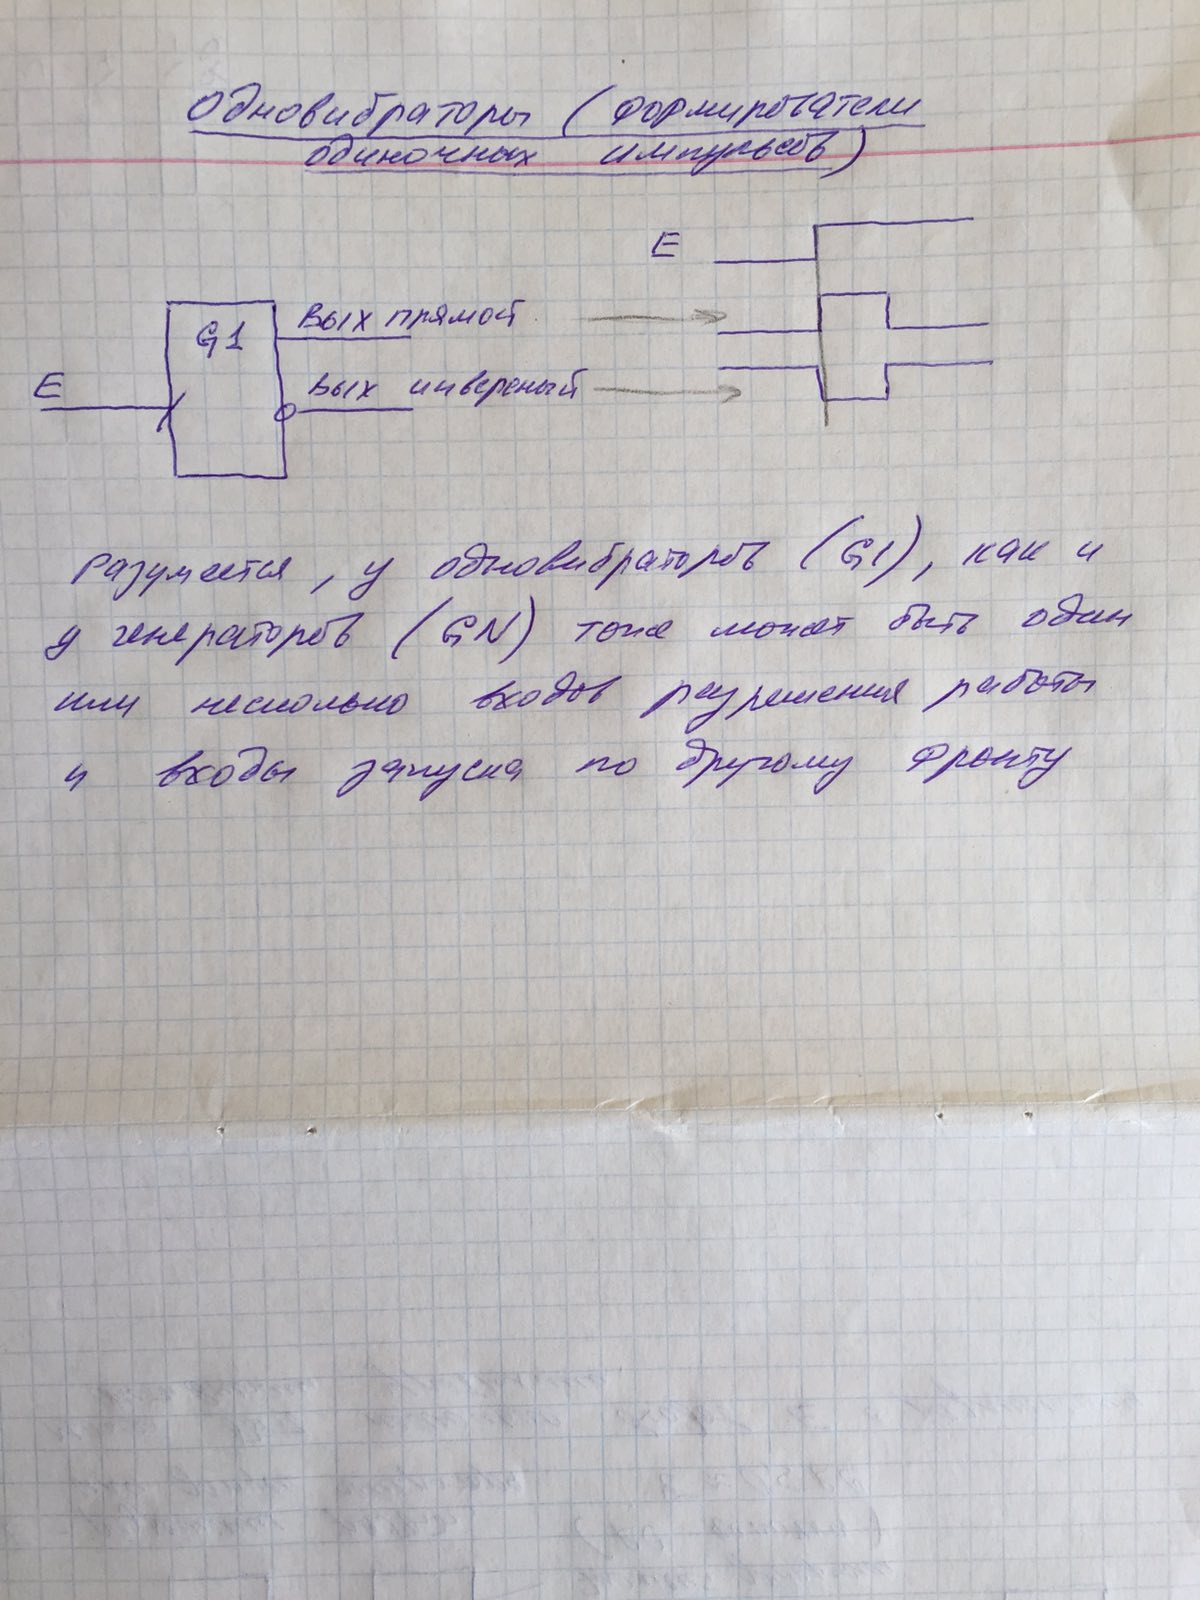 Одновибраторы (формирователи
одиночных импульсов)
E
G1
Вых прямой
E
Вых инверсный
Разумеется, у одновибраторов (G1), как и
у генераторов (GN) тоже может быть один
или несколько входов разрешения работы
и входы запуска по другому фронту